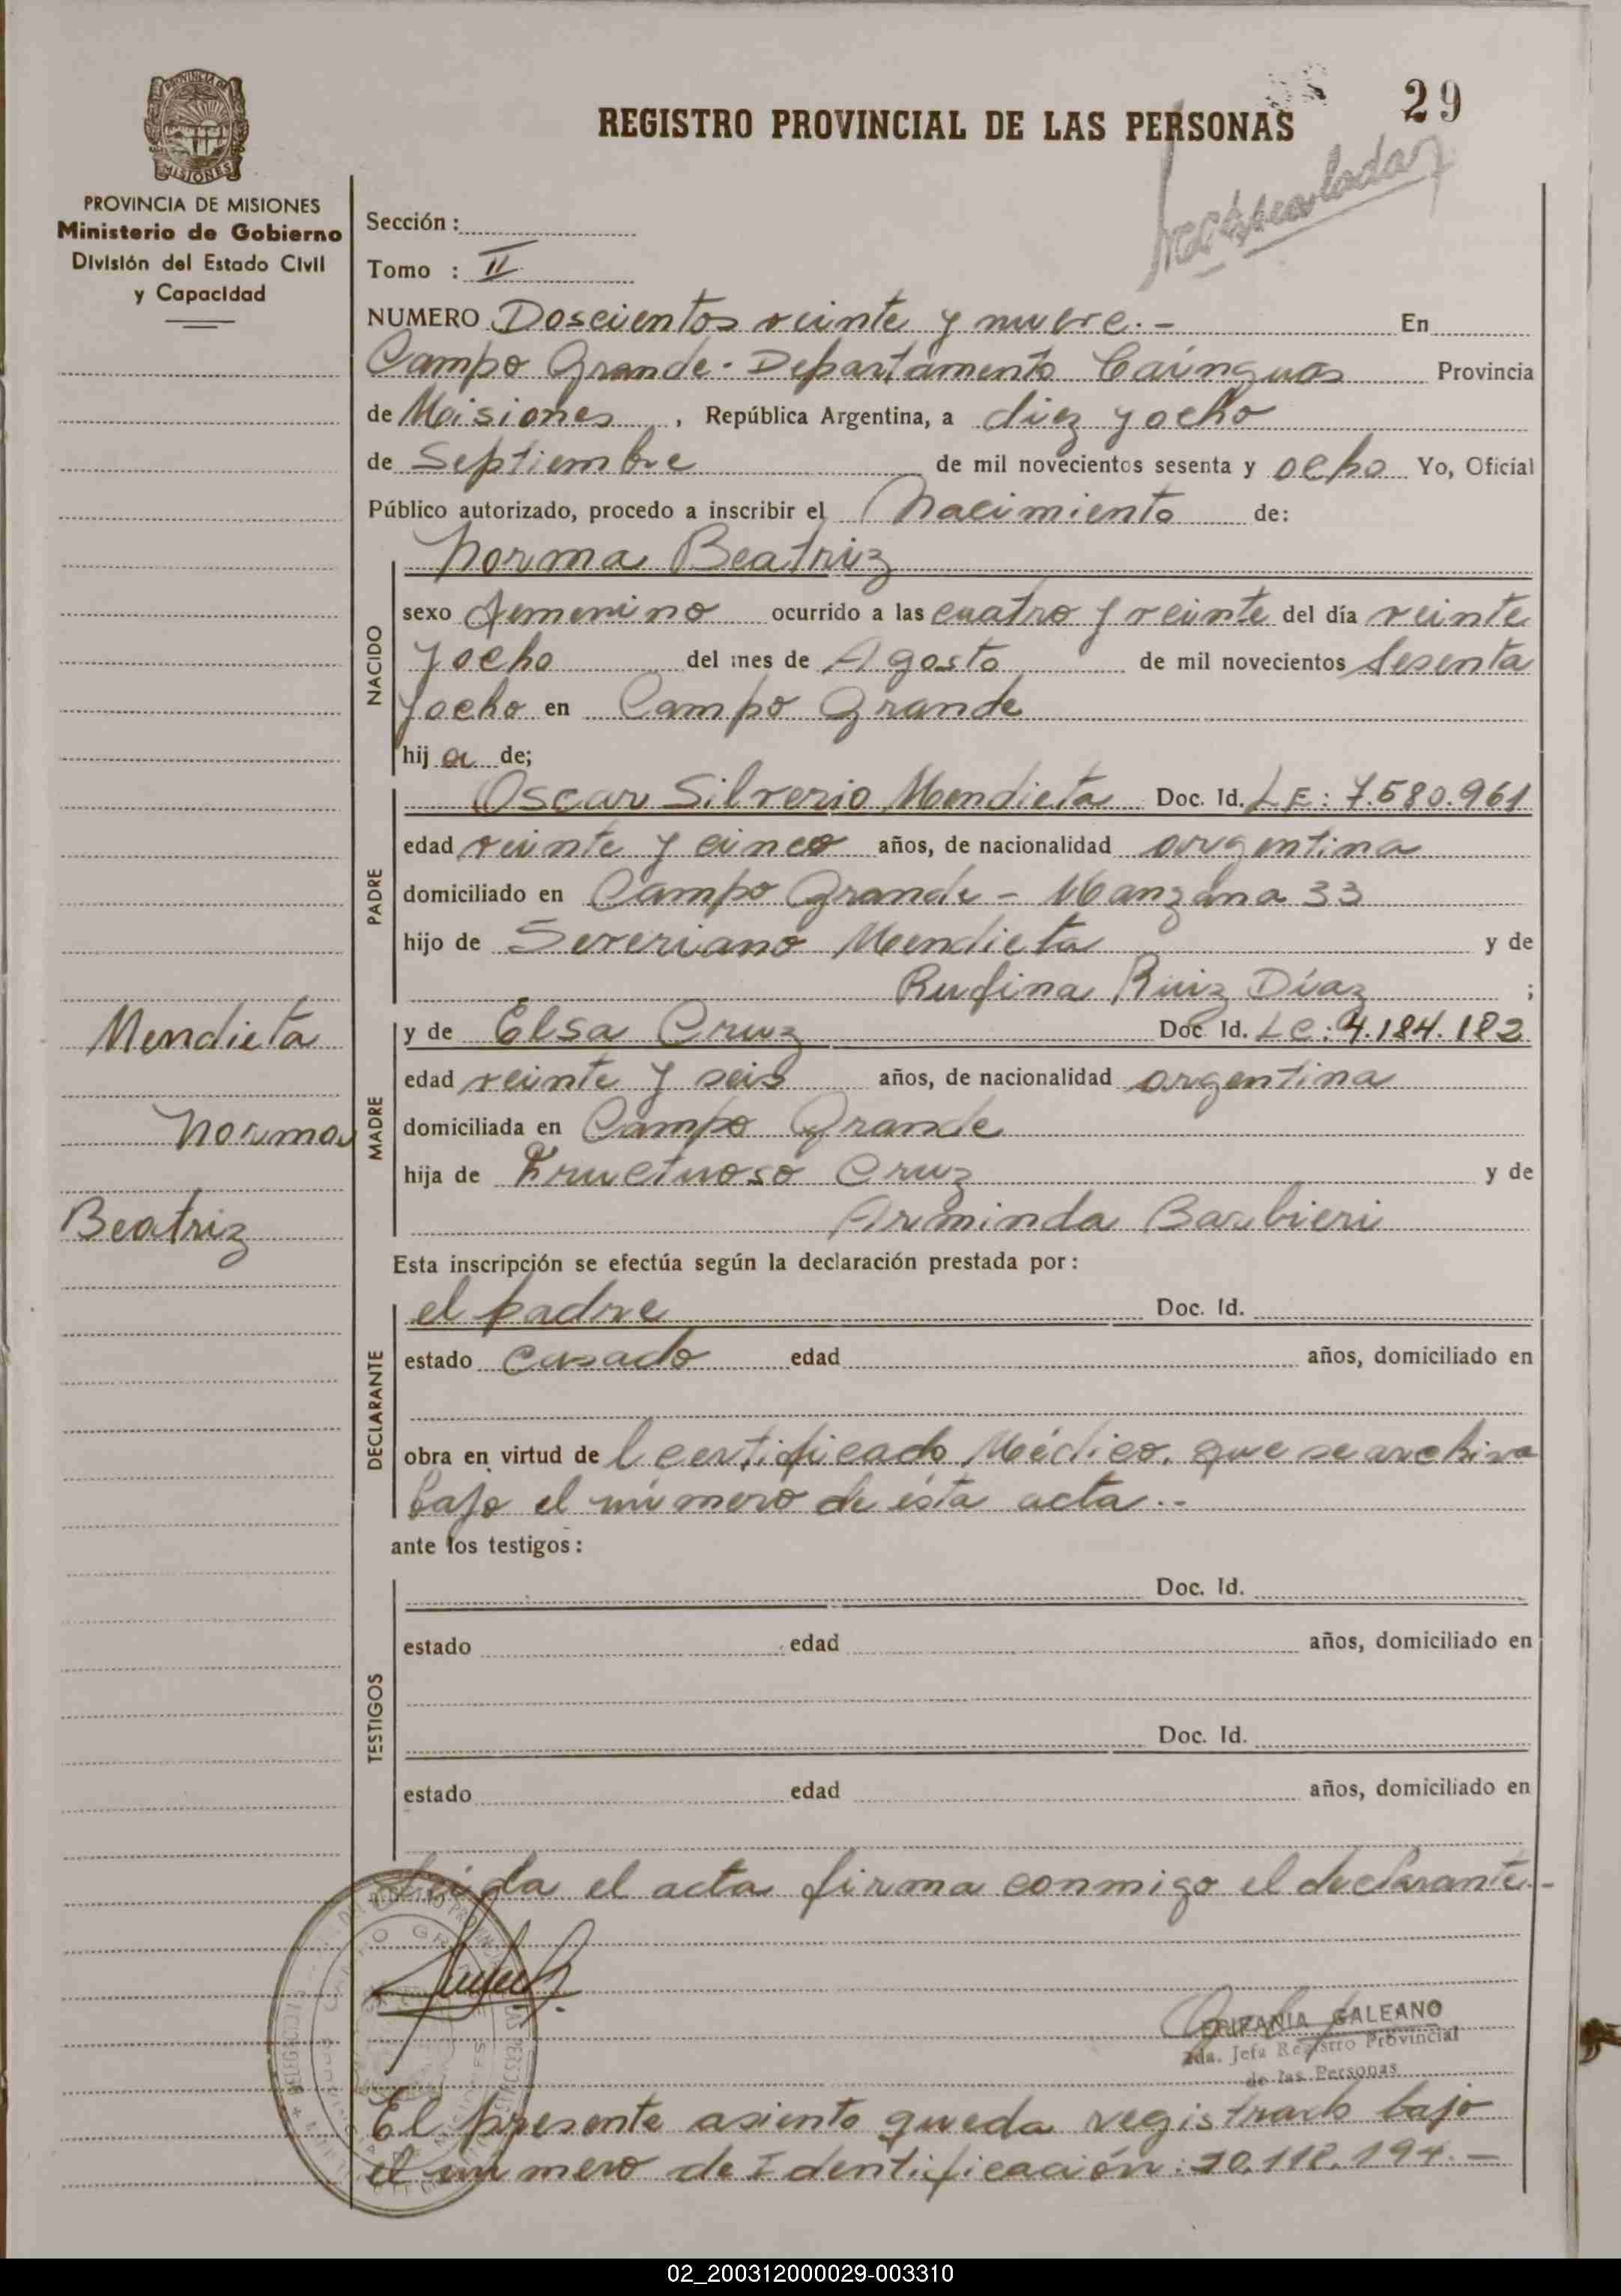 REGISTRO PROVINCIAL DE LAS PERSONAS
29
PROVINCIA DE MISIONES
MISIONES
PROVINCIA DE MISIONES
Ministerio de Gobierno
División del Estado Civil
y Capacidad
Sección :
Tomo : II
NUMERO Doscientos veinte y nueve.- En
Campo Grande - Departamento Cainguas Provincia
de Misiones , República Argentina, a diez y ocho
de Septiembre de mil novecientos sesenta y ocho Yo, Oficial
Público autorizado, procedo a inscribir el Nacimiento de:
Norma Beatriz
NACIDO
sexo femenino ocurrido a las cuatro y veinte del día veinte
y ocho del mes de Agosto de mil novecientos sesenta
y ocho en Campo Grande
hij a de;
Oscar Silverio Mendieta Doc. Id. LE: 7.580.961
PADRE
edad veinte y cinco años, de nacionalidad argentina
domiciliado en Campo Grande - Manzana 33
hijo de Severiano Mendieta y de
Rufina Ruiz Díaz ;
Mendieta
Norma
Beatriz
y de Elsa Cruz Doc. Id. LC: 4.184.182
MADRE
edad veinte y seis años, de nacionalidad argentina
domiciliada en Campo Grande
hija de Fructuoso Cruz y de
Arminda Barbieri
Esta inscripción se efectúa según la declaración prestada por:
el padre Doc. Id.
DECLARANTE
estado casado edad años, domiciliado en
obra en virtud de certificado Médico, que se archiva
bajo el número de ésta acta.-
ante los testigos:
Doc. Id.
TESTIGOS
estado edad años, domiciliado en
Doc. Id.
estado edad años, domiciliado en
Leida el acta firma conmigo el declarante.-
GALEANO
2da. Jefa Registro Provincial
de las Personas
El presente asiento queda registrado bajo
el numero de Identificación: 20.118.194.-
02_200312000029-003310